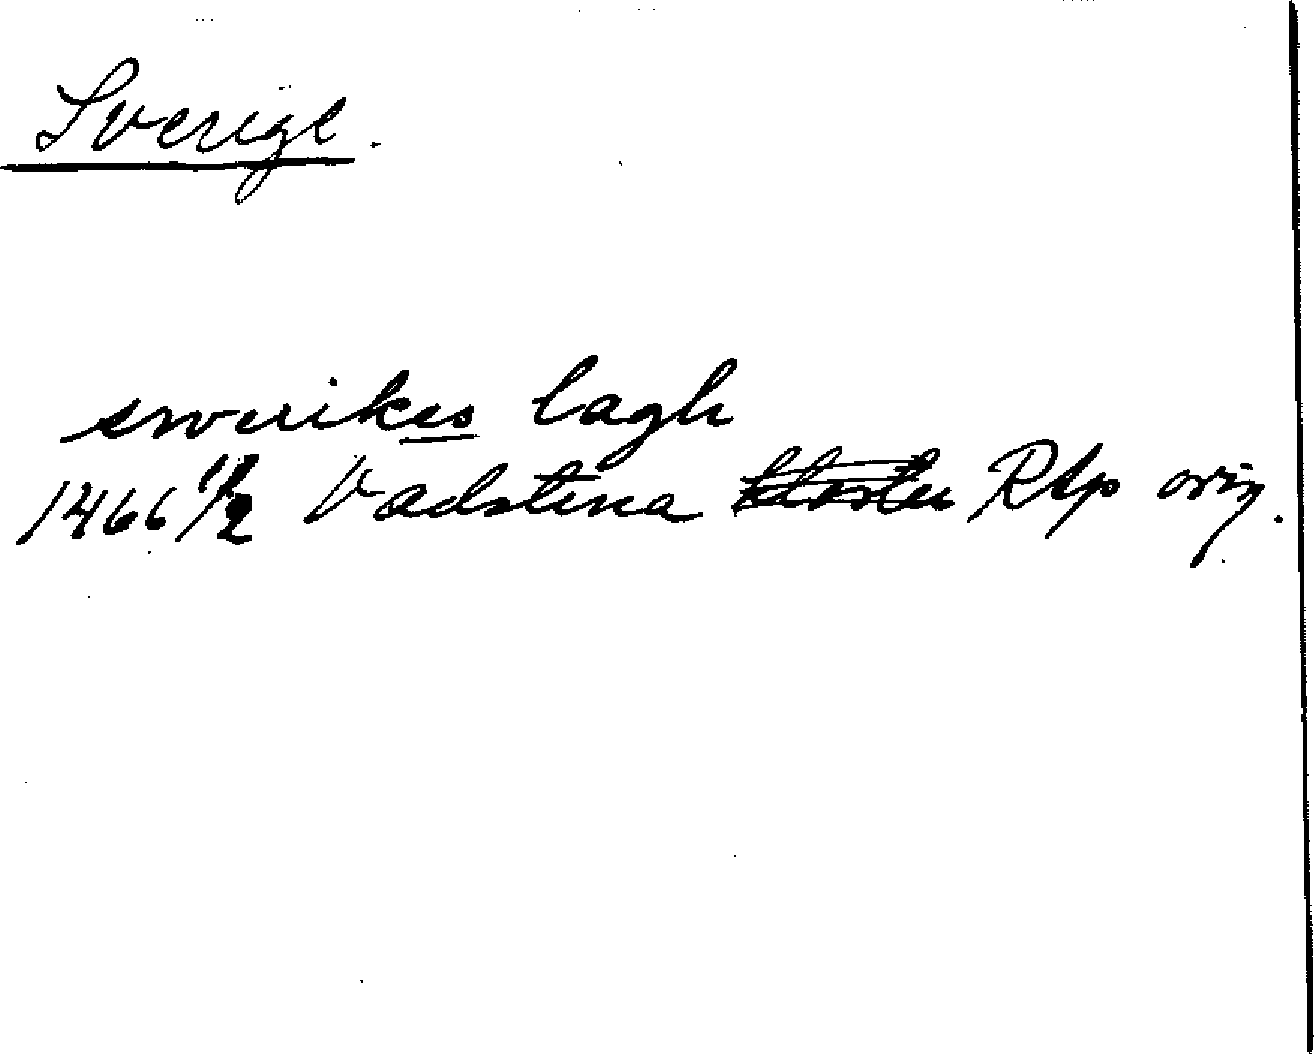 Sverige.
swerikes lagh
1466 11/2 Vadstena kloster Rkp orig.